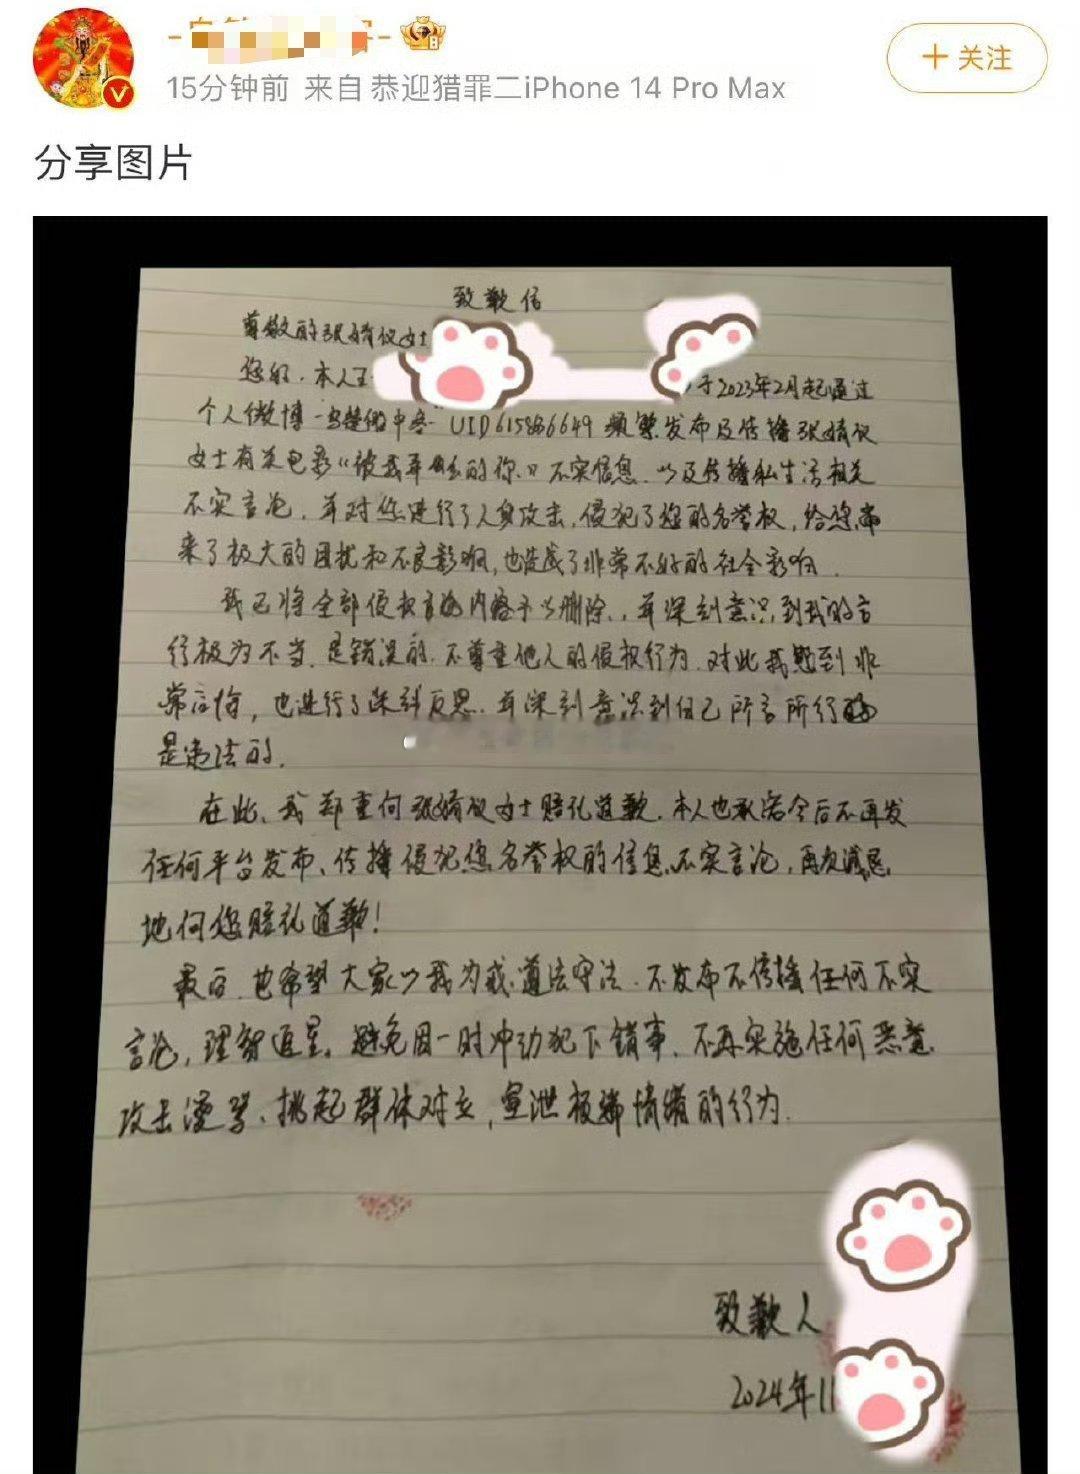 15分钟前 来自 恭迎猎罪二iPhone 14 Pro Max
+关注
分享图片
致歉信
尊敬的张婧仪女士
您好,本人王
于2023年2月起通过
个人微博 UID 615886649 频繁发布及传播张婧仪
女士有关电影《被我弄丢的你》不实信息,以及传播私生活相关
不实言论,并对您进行了人身攻击,侵犯了您的名誉权,给您带
来了极大的困扰和不良影响,也造成了非常不好的社会影响.
我已将全部侵权言论内容予以删除,并深刻意识到我的言
行极为不当,是错误的,不尊重他人的侵权行为,对此我感到非
常后悔,也进行了深刻反思,并深刻意识到自己所言所行
是违法的.
在此,我郑重向张婧仪女士赔礼道歉,本人也承诺今后不再发
任何平台发布、传播侵犯您名誉权的信息不实言论,再次诚恳
地向您赔礼道歉!
最后,也希望大家以我为戒,遵法守法,不发布不传播任何不实
言论,理智追星,避免因一时冲动犯下错事,不再实施任何恶意
攻击谩骂、挑起群体对立,宣泄极端情绪的行为.
致歉人
2024年11